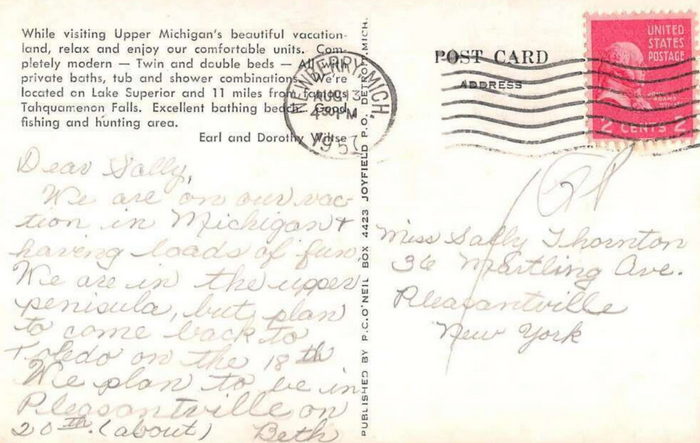 While visiting Upper Michigan's beautiful vacation-
land, relax and enjoy our comfortable units. Com-
pletely modern — Twin and double beds — All with
private baths, tub and shower combinations. We're
located on Lake Superior and 11 miles from famous
Tahquamenon Falls. Excellent bathing beach. Good
fishing and hunting area.
Earl and Dorothy Wiltse
NEWBERRY, MICH.
AUG 13
4 30 PM
1957
POST CARD
ADDRESS
UNITED
STATES
POSTAGE
JOHN
ADAMS
2 CENTS 2
PUBLISHED BY P.C. O'NEIL BOX 4423 JOYFIELD P.O. DETROIT, MICH.
Dear Sally,
We are on our vac-
tion in Michigan &
having loads of fun.
We are in the upper
penisula, but plan
to come back to
Toledo on the 18th
We plan to be in
Pleasantville on
20th. (about) Beth
Miss Sally Thornton
36 Martling Ave.
Pleasantville
New York